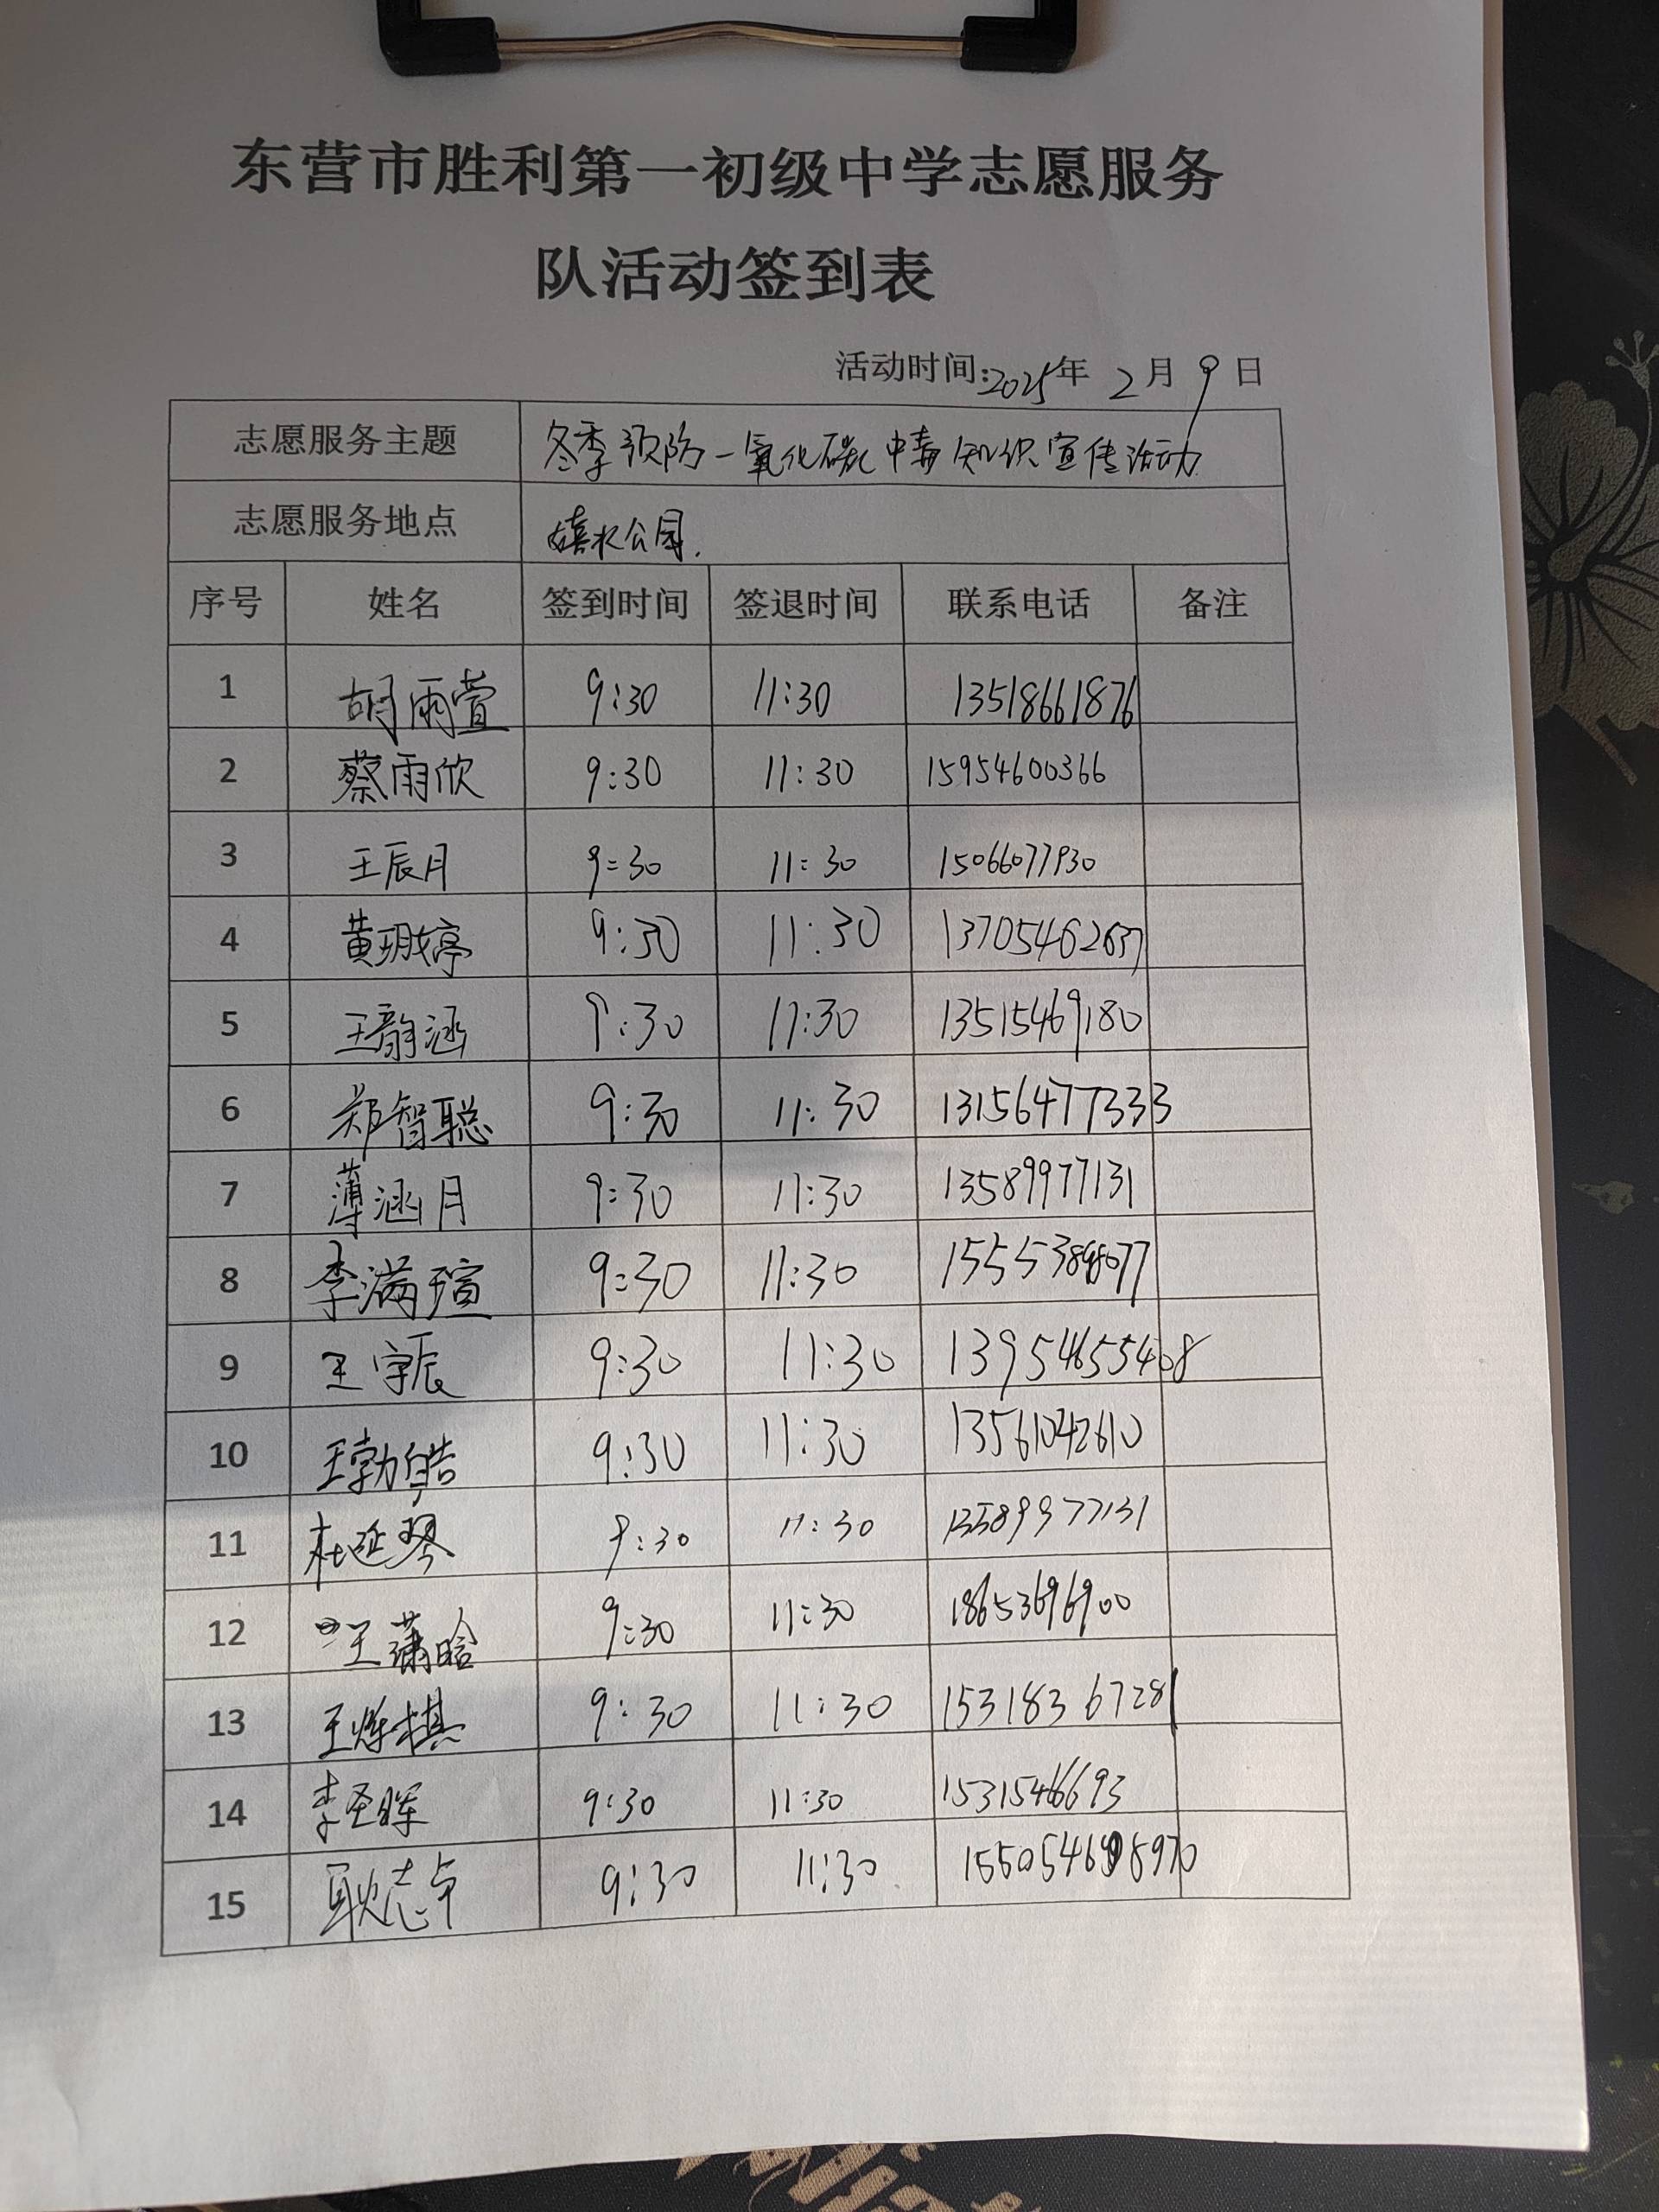 东营市胜利第一初级中学志愿服务
队活动签到表
活动时间:2025年 2月 9日
志愿服务主题 冬季预防一氧化碳中毒知识宣传活动
志愿服务地点 嬉水公园.
序号 姓名 签到时间 签退时间 联系电话 备注
1 胡雨萱 9:30 11:30 13518661876
2 蔡雨欣 9:30 11:30 15954600366
3 王辰月 9:30 11:30 15066077930
4 黄玥婷 9:30 11:30 13705462637
5 王韵涵 9:30 11:30 13515469180
6 郑智聪 9:30 11:30 13156477333
7 薄涵月 9:30 11:30 13589977131
8 李满瑄 9:30 11:30
9 王宇辰 9:30 11:30 13954655408
10 王勃皓 9:30 11:30 13561042610
11 杜延琴 9:30 11:30 13589977131
12 王潇晗 9:30 11:30 18653696900
13 王烁棋 9:30 11:30 15318367281
14 李圣晖 9:30 11:30 15315466693
15 耿志卓 9:30 11:30